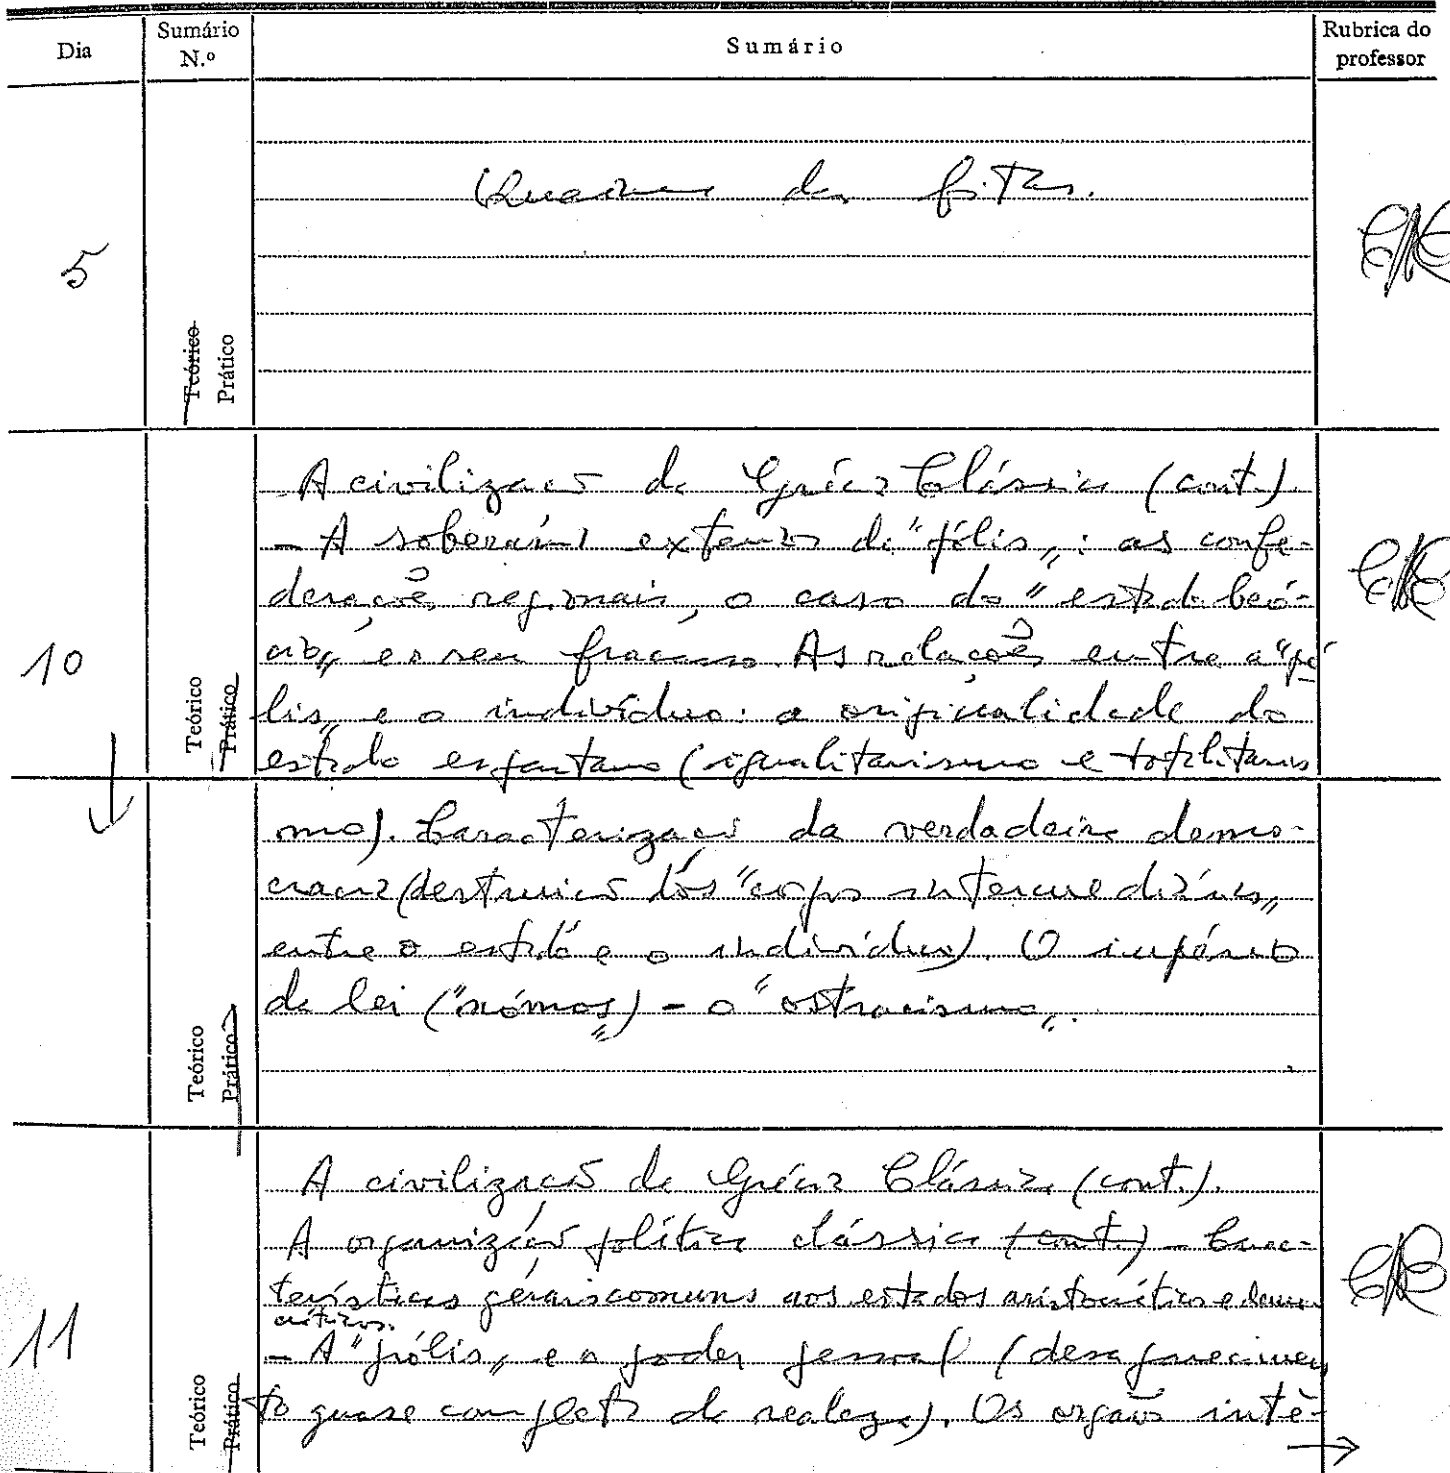 Dia
Sumário N.º
Sumário
Rubrica do professor
5
Teórico
Prático
Queima das fitas.
10
Teórico
Prático
A civilização da Grécia Clássica (cont.).
- A soberania externa da "pólis": as confe-
derações regionais, o caso do "estado beó-
cio" e o seu fracasso. As relações entre a "pó
lis" e o indivíduo: a originalidade do
estado espartano (igualitarismo e totalitaris
Teórico
Prático
mo). Caracterização da verdadeira demo-
cracia (destruição dos "corpos intermediários"
entre o estado e o indivíduo). O império
da lei ("nómos") - o "ostracismo".
11
Teórico
Prático
A civilização da Grécia Clássica (cont.).
A organização política clássica (cont.) - Carac-
terísticas gerais comuns aos estados aristocráticos e demo
cráticos.
- A "pólis" e o poder pessoal (desaparecimen
to quase completo da realeza). Os orgãos inte-